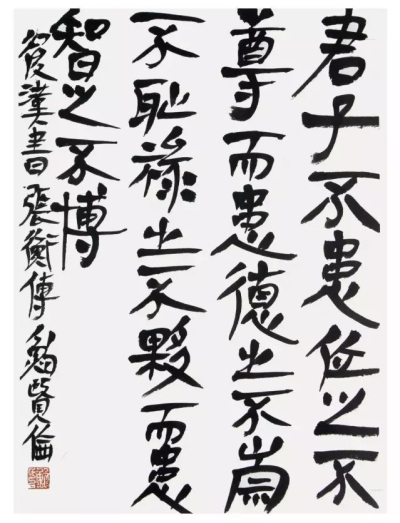 君子不患位之不
尊而患德之不崇
不耻祿之不夥而患
智之不博
後漢書張衡傳 鮑賢倫